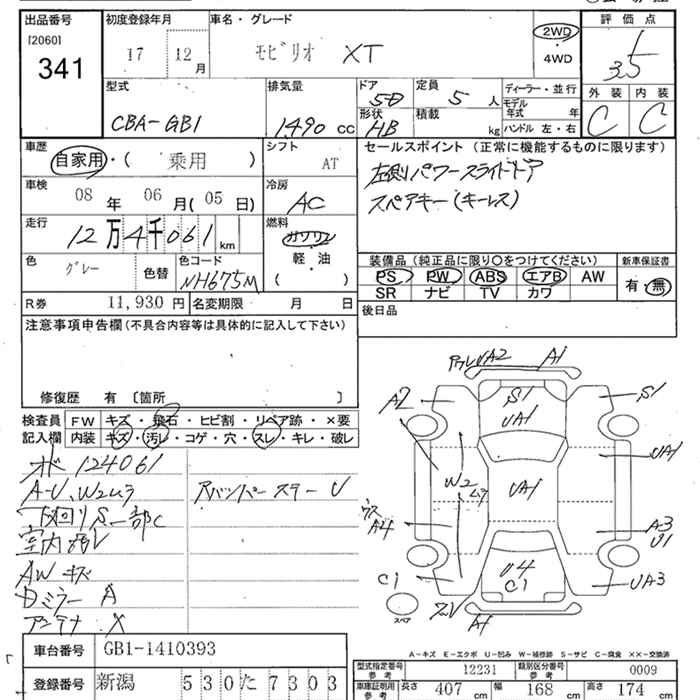 出品番号 初度登録年月 車名・グレード 評価点
[2060]
341
17 12月 モビリオ XT 2WD ・ 4WD 3.5
型式 排気量 ドア 定員 ディーラー・並行 外装 内装
CBA-GB1 1490 cc 5D 5人 モデル年式 年 C C
形状 積載 ハンドル 左・右
HB kg
車歴 シフト セールスポイント (正常に機能するものに限ります)
自家用・( 乗用 ) AT 左側パワースライドドア
車検 冷房 スペアキー(キーレス)
08年 06月(05日) AC
走行 燃料
12万4千061km ガソリン
軽・油
( )
色 色替 色コード
グレー NH675M
装備品 (純正品に限り〇をつけてください) 新車保証書
PS PW ABS エアB AW 有・無
SR ナビ TV カワ
R券 11,930円 名変期限 月 日 後日品
注意事項申告欄(不具合内容等は具体的に記入して下さい)
修復歴 有 〔箇所 〕
検査員 FW キズ・飛石・ヒビ割・リペア跡・×要
記入欄 内装 キズ・汚レ・コゲ・穴・スレ・キレ・破レ
124061
A-U、W2ムラ Rバンパーステー U
下回りS一部C
室内汚レ
AWキズ
Dミラー A
アンテナ X
A2 A1
A2 S1 S1
UA1
UA1
W2 ムラ UA1
A4 A3
U1
C1 U4 UA3
C1
A1
スペア
A-キズ E-エクボ U-凹み W-補修跡 S-サビ C-腐食 XX-交換済
車台番号 GB1-1410393
登録番号 新潟 530た7303
型式指定番号 参考 12231 類別区分番号 参考 0009
車庫証明用 参考 長さ 407cm 幅 168cm 高さ 174cm